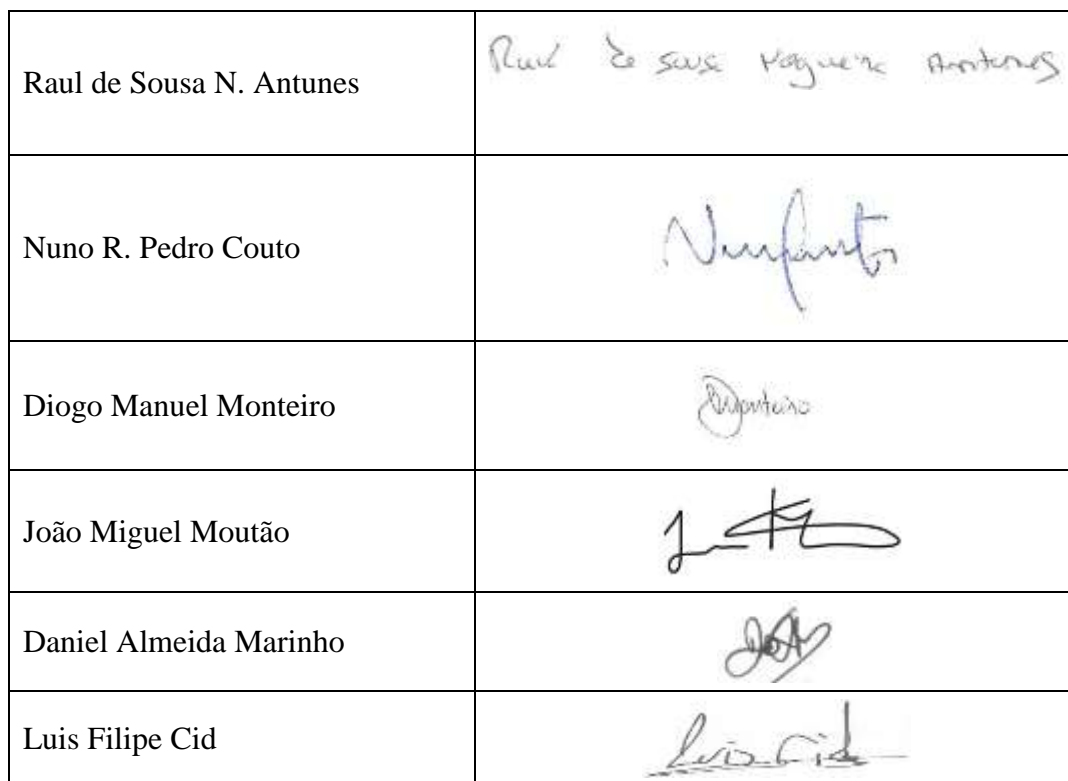 Raul de Sousa N. Antunes
Raul de Sousa Nogueira Antunes
Nuno R. Pedro Couto
Diogo Manuel Monteiro
DMonteiro
João Miguel Moutão
Daniel Almeida Marinho
Luis Filipe Cid
Luis Cid